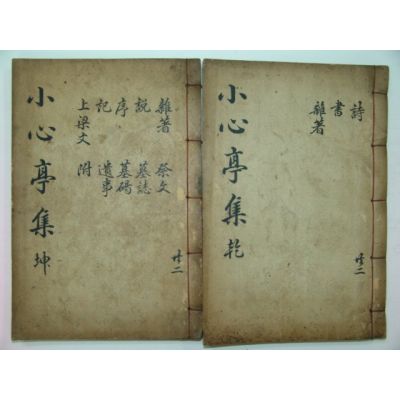 小心亭集 乾
詩
書
雜著
共二
小心亭集 坤
雜著 祭文
說 墓誌
序 墓碣
記 遺事
上梁文 附
共二